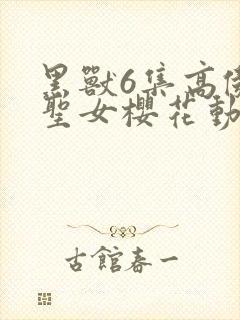 黑獸6集高傲
聖女櫻花動
古館春一